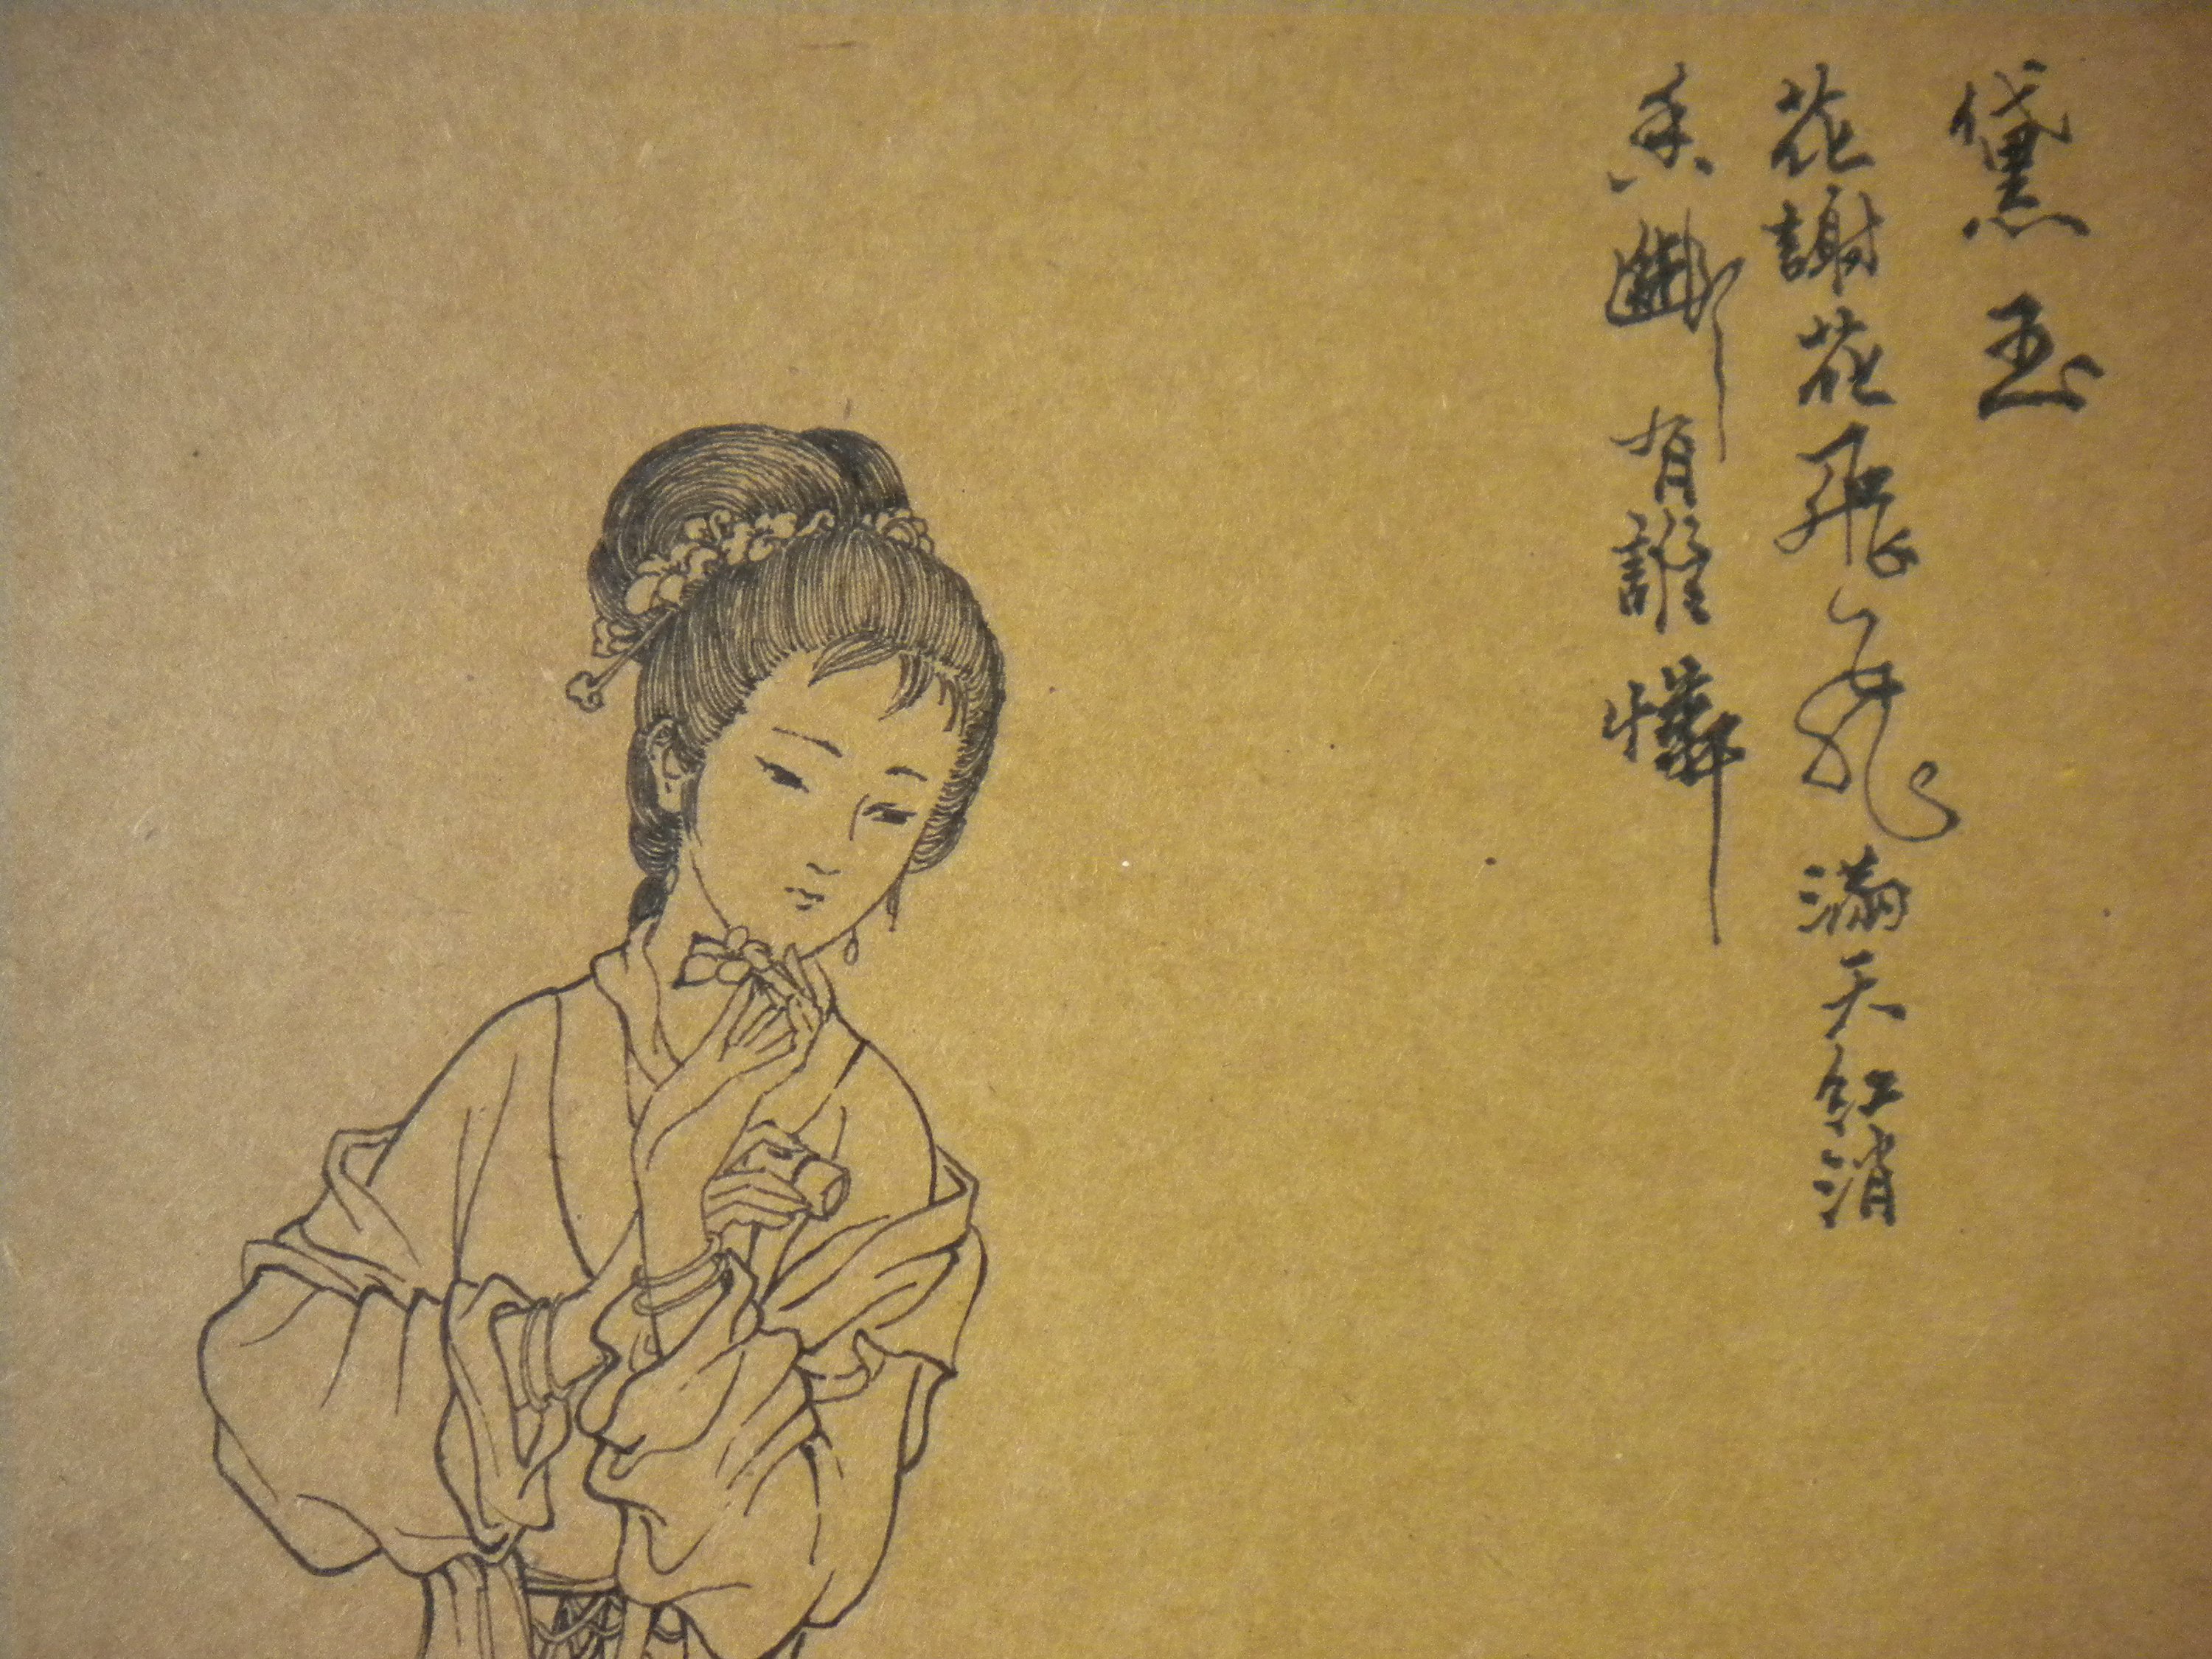 黛玉
花謝花飛飛滿天紅消
香斷有誰憐